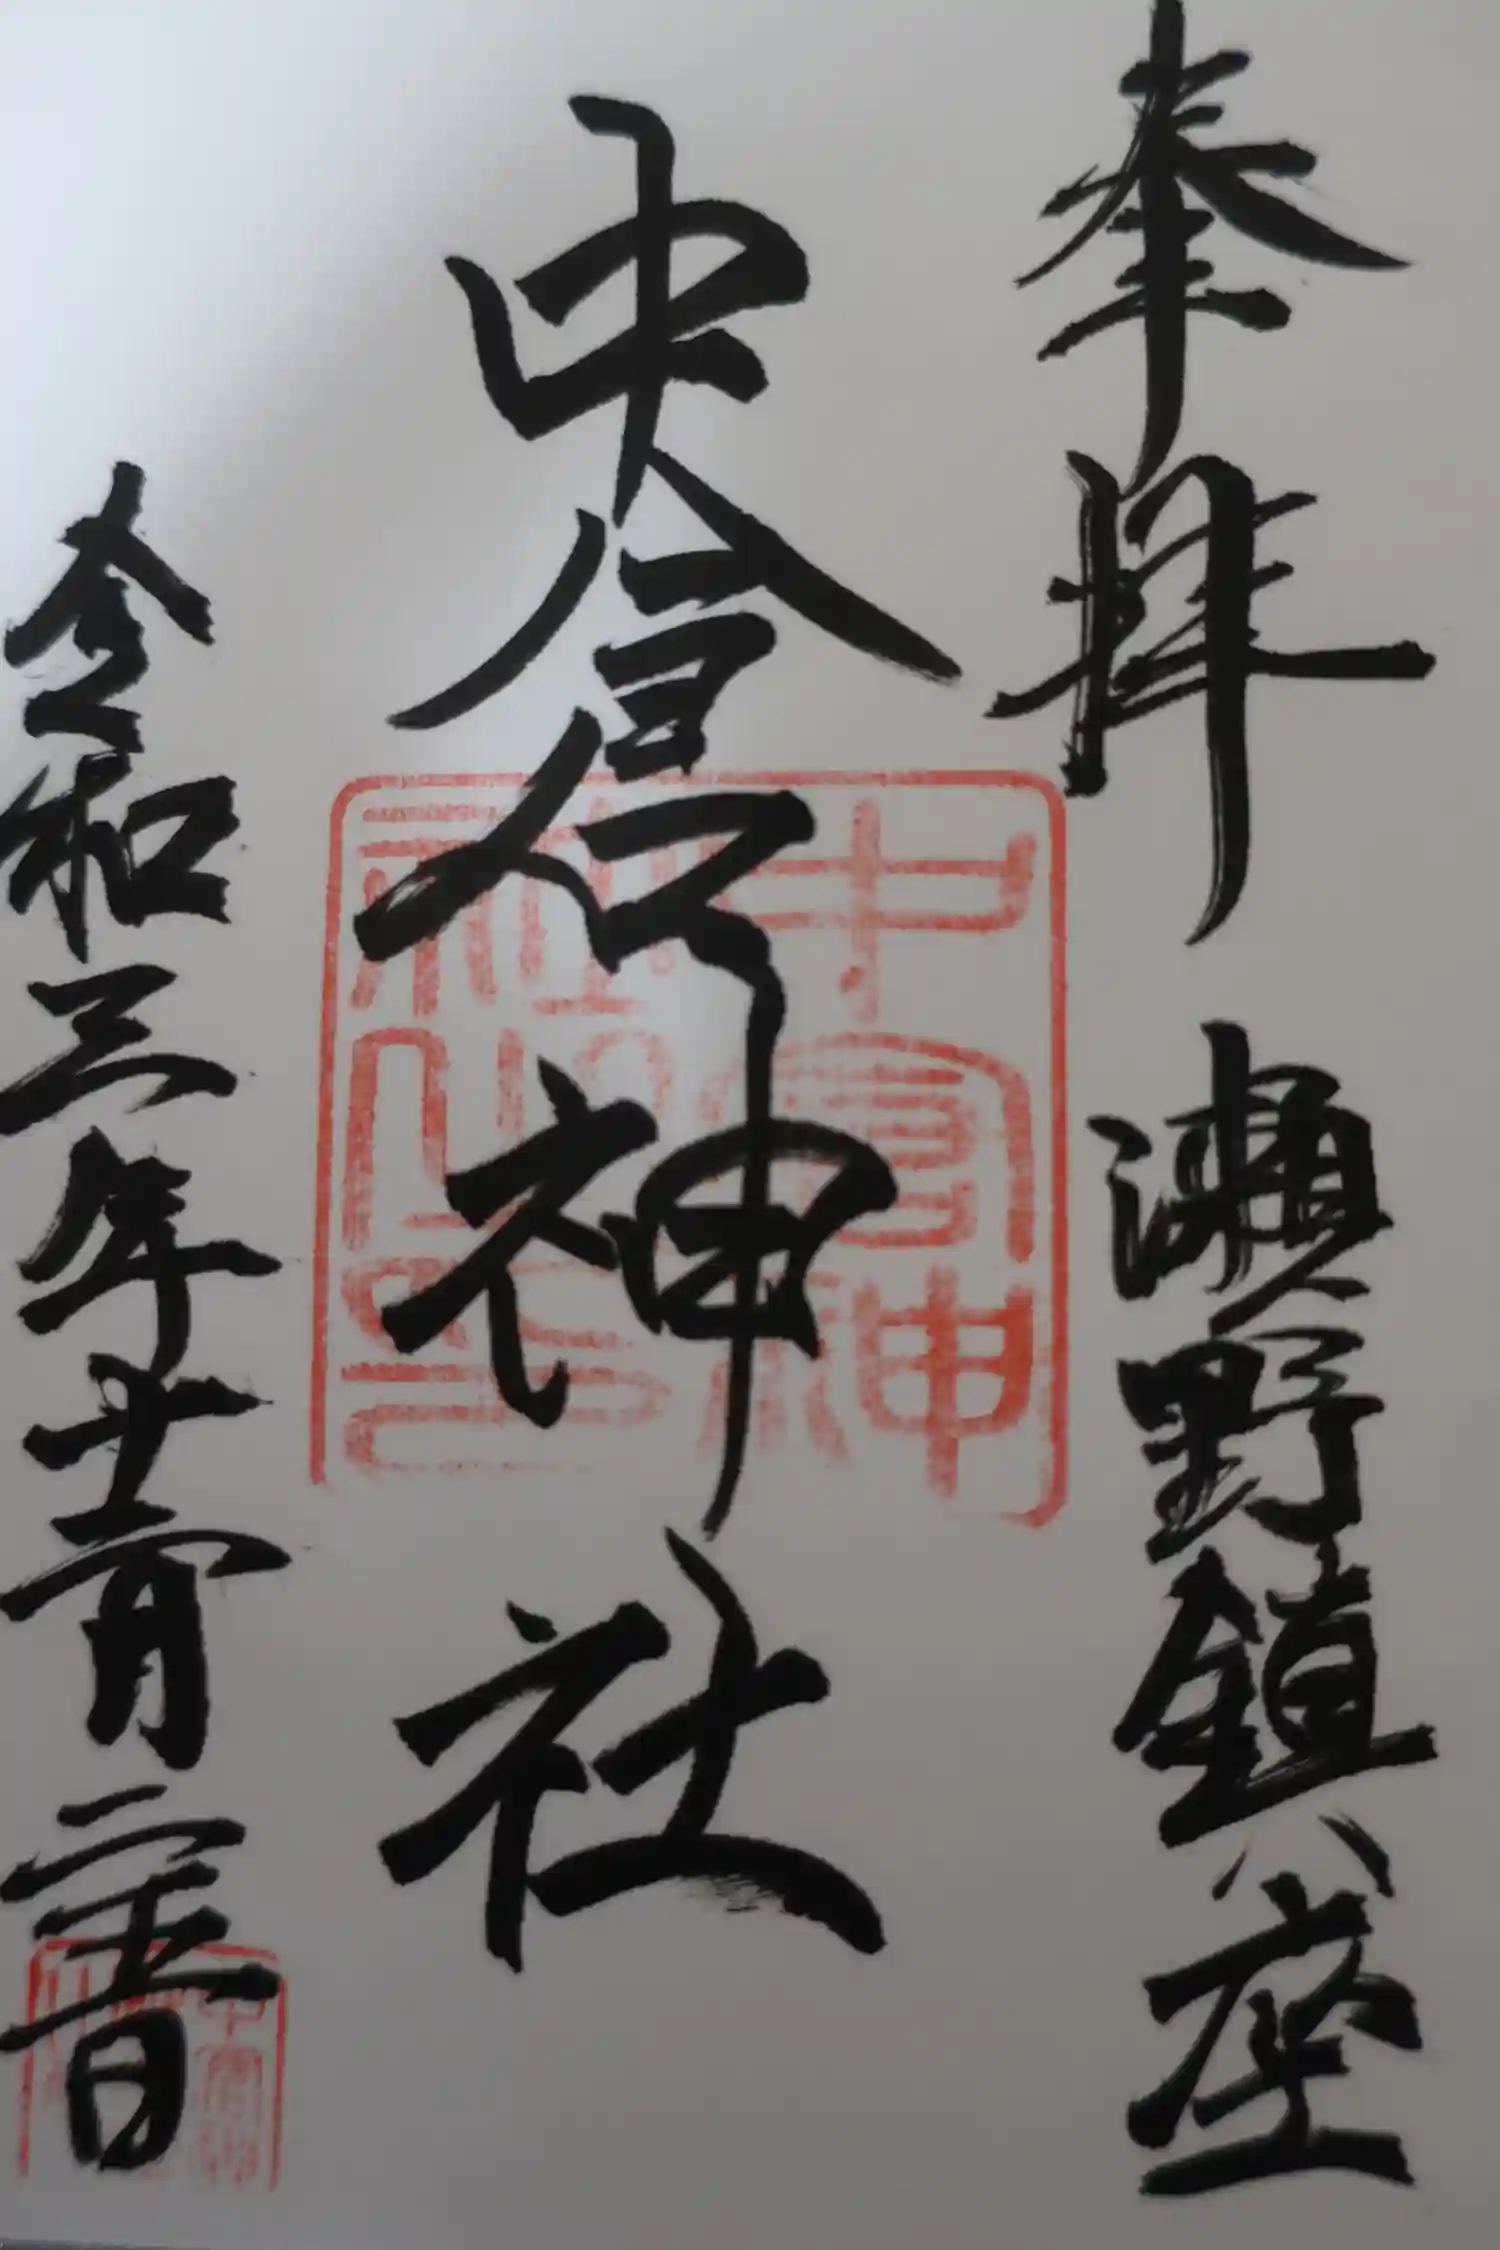 奉拝 瀬野鎮座
中倉神社
令和三年十二月二十 日
中倉神
社之印